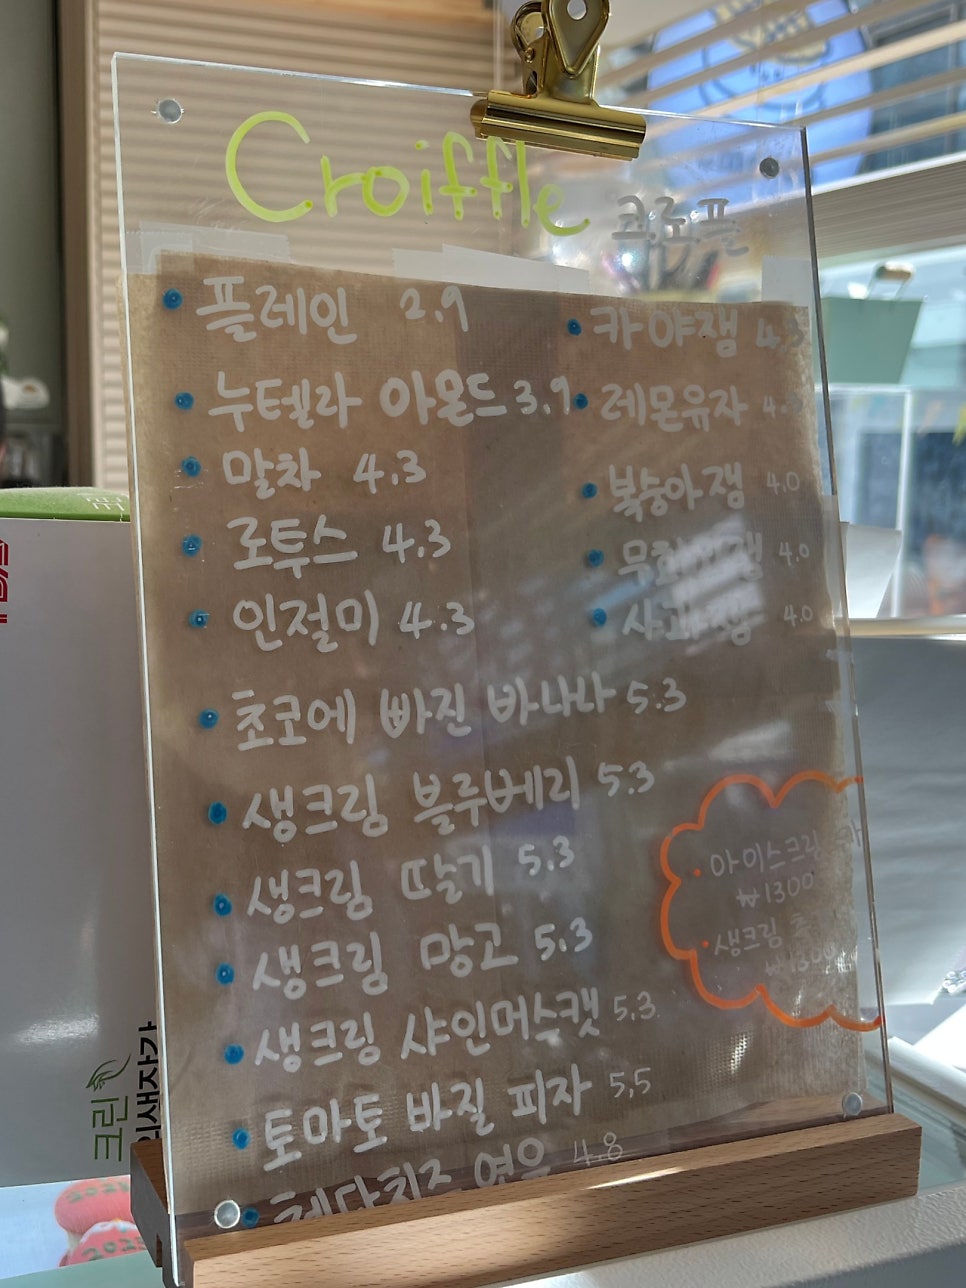 Croiffle 크로플
플레인 2.9
누텔라 아몬드 3.9
말차 4.3
로투스 4.3
인절미 4.3
카야잼 4.3
레몬유자 4.
복숭아잼 4.0
무화과잼 4.0
사과잼 4.0
초코에 빠진 바나나 5.3
생크림 블루베리 5.3
생크림 딸기 5.3
생크림 망고 5.3
생크림 샤인머스캣 5.3
토마토 바질 피자 5.5
체다치즈 여우 4.8
아이스크림
₩1300
생크림
₩1300
크린